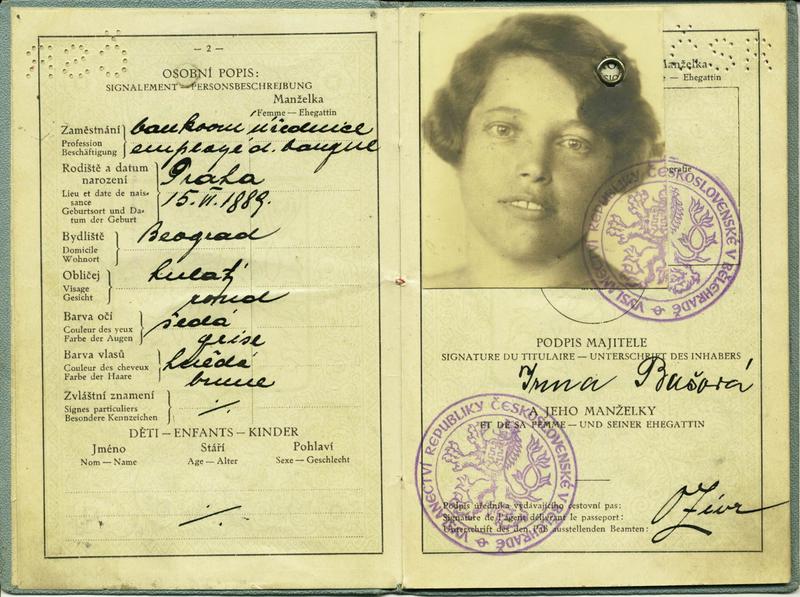 — 2 —
OSOBNÍ POPIS:
SIGNALEMENT — PERSONSBESCHREJBUNG
Manželka
Femme — Ehegattin
Zaměstnání
Profession
Beschäftigung
bankovní úřednice
employée d. banque
Rodiště a datum
narození
Lieu et date de nais-
sance
Geburtsort und Da-
tum der Geburt
Praha
15. VI. 1889.
Bydliště
Domicile
Wohnort
Beograd
Obličej
Visage
Gesicht
kulatý
rond
Barva očí
Couleur des yeux
Farbe der Augen
šedá
grise
Barva vlasů
Couleur des cheveux
Farbe der Haare
hnědá
brune
Zvláštní znamení
Signes particuliers
Besondere Kennzeichen
DĚTI — ENFANTS — KINDER
Jméno Stáří Pohlaví
Nom — Name Age — Alter Sexe — Geschlecht
Manželka
— Ehegattin
VYSLANECTVÍ REPUBLIKY ČESKOSLOVENSKÉ V BĚLEHRADĚ
PODPIS MAJITELE
SIGNATURE DU TITULAIRE — UNTERSCHRIFT DES INHABERS
Irma Bašová
A JEHO MANŽELKY
ET DE SA FEMME — UND SEINER EHEGATTIN
VYSLANECTVÍ REPUBLIKY ČESKOSLOVENSKÉ V BĚLEHRADĚ
Podpis úředníka vydávajícího cestovní pas:
Signature de l'agent délivrant le passeport:
Unterschrift des den Paß ausstellenden Beamten: